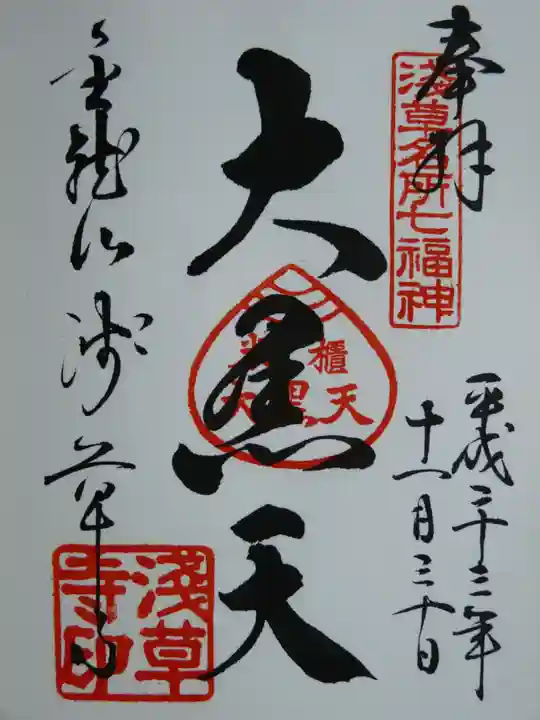 奉拝
淺草名所七福神
平成二十三年
十一月三十日
大黒天
櫃
天
金龍山 浅草寺
淺草
寺印